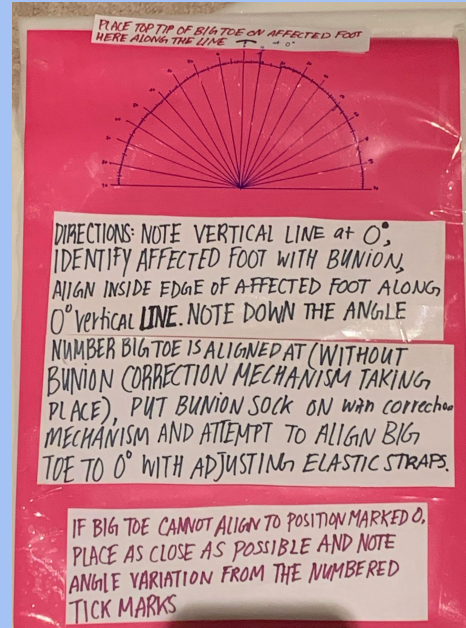 PLACE TOP TIP OF BIG TOE ON AFFECTED FOOT
HERE ALONG THE LINE
DIRECTIONS: NOTE VERTICAL LINE at 0°,
IDENTIFY AFFECTED FOOT WITH BUNION,
AlIGN INSIDE EDGE OF AFFECTED FOOT ALONG
0° vertical LINE. NOTE DOWN THE ANGLE
NUMBER BIG TOE IS ALIGNED AT (WITHOUT
BUNION CORRECTION MECHANISM TAKING
PLACE), PUT BUNION SOCK ON with correction
MECHANISM AND ATTEMPT TO ALIGN BIG
TOE TO 0° WITH ADJUSTING ELASTIC STRAPS.
IF BIG TOE CANNOT ALIGN TO POSITION MARKED 0,
PLACE AS CLOSE AS POSSIBLE AND NOTE
ANGLE VARIATION FROM THE NUMBERED
TICK MARKS